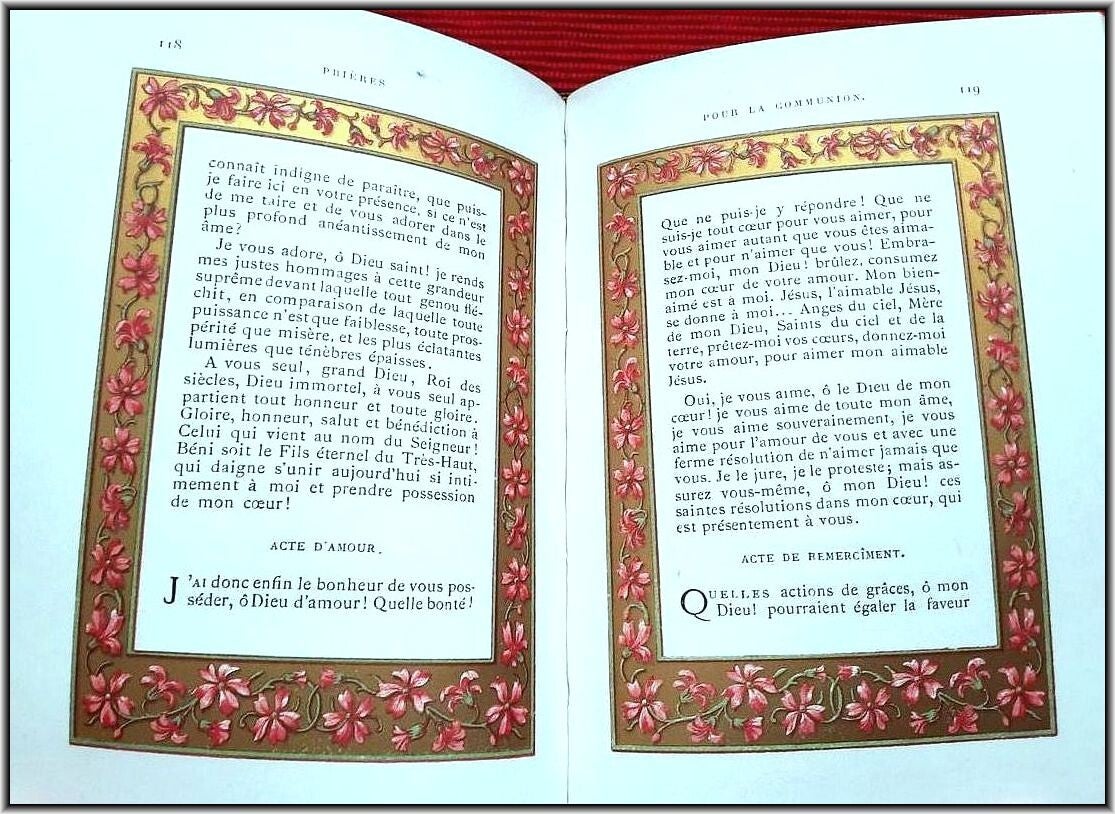 118
PRIÈRES
connaît indigne de paraître, que puis-
je faire ici en votre présence, si ce n'est
de me taire et de vous adorer dans le
plus profond anéantissement de mon
âme?
Je vous adore, ô Dieu saint! je rends
mes justes hommages à cette grandeur
suprême devant laquelle tout genou flé-
chit, en comparaison de laquelle toute
puissance n'est que faiblesse, toute pros-
périté que misère, et les plus éclatantes
lumières que ténèbres épaisses.
A vous seul, grand Dieu, Roi des
siècles, Dieu immortel, à vous seul ap-
partient tout honneur et toute gloire.
Gloire, honneur, salut et bénédiction à
Celui qui vient au nom du Seigneur!
Béni soit le Fils éternel du Très-Haut,
qui daigne s'unir aujourd'hui si inti-
mement à moi et prendre possession
de mon cœur!
ACTE D'AMOUR.
J'AI donc enfin le bonheur de vous pos-
séder, ô Dieu d'amour! Quelle bonté!
POUR LA COMMUNION.
119
Que ne puis-je y répondre! Que ne
suis-je tout cœur pour vous aimer, pour
vous aimer autant que vous êtes aima-
ble et pour n'aimer que vous! Embra-
sez-moi, mon Dieu! brûlez, consumez
mon cœur de votre amour. Mon bien-
aimé est à moi. Jésus, l'aimable Jésus,
se donne à moi... Anges du ciel, Mère
de mon Dieu, Saints du ciel et de la
terre, prêtez-moi vos cœurs, donnez-moi
votre amour, pour aimer mon aimable
Jésus.
Oui, je vous aime, ô le Dieu de mon
cœur! je vous aime de toute mon âme,
je vous aime souverainement, je vous
aime pour l'amour de vous et avec une
ferme résolution de n'aimer jamais que
vous. Je le jure, je le proteste; mais as-
surez vous-même, ô mon Dieu! ces
saintes résolutions dans mon cœur, qui
est présentement à vous.
ACTE DE REMERCÎMENT.
QUELLES actions de grâces, ô mon
Dieu! pourraient égaler la faveur